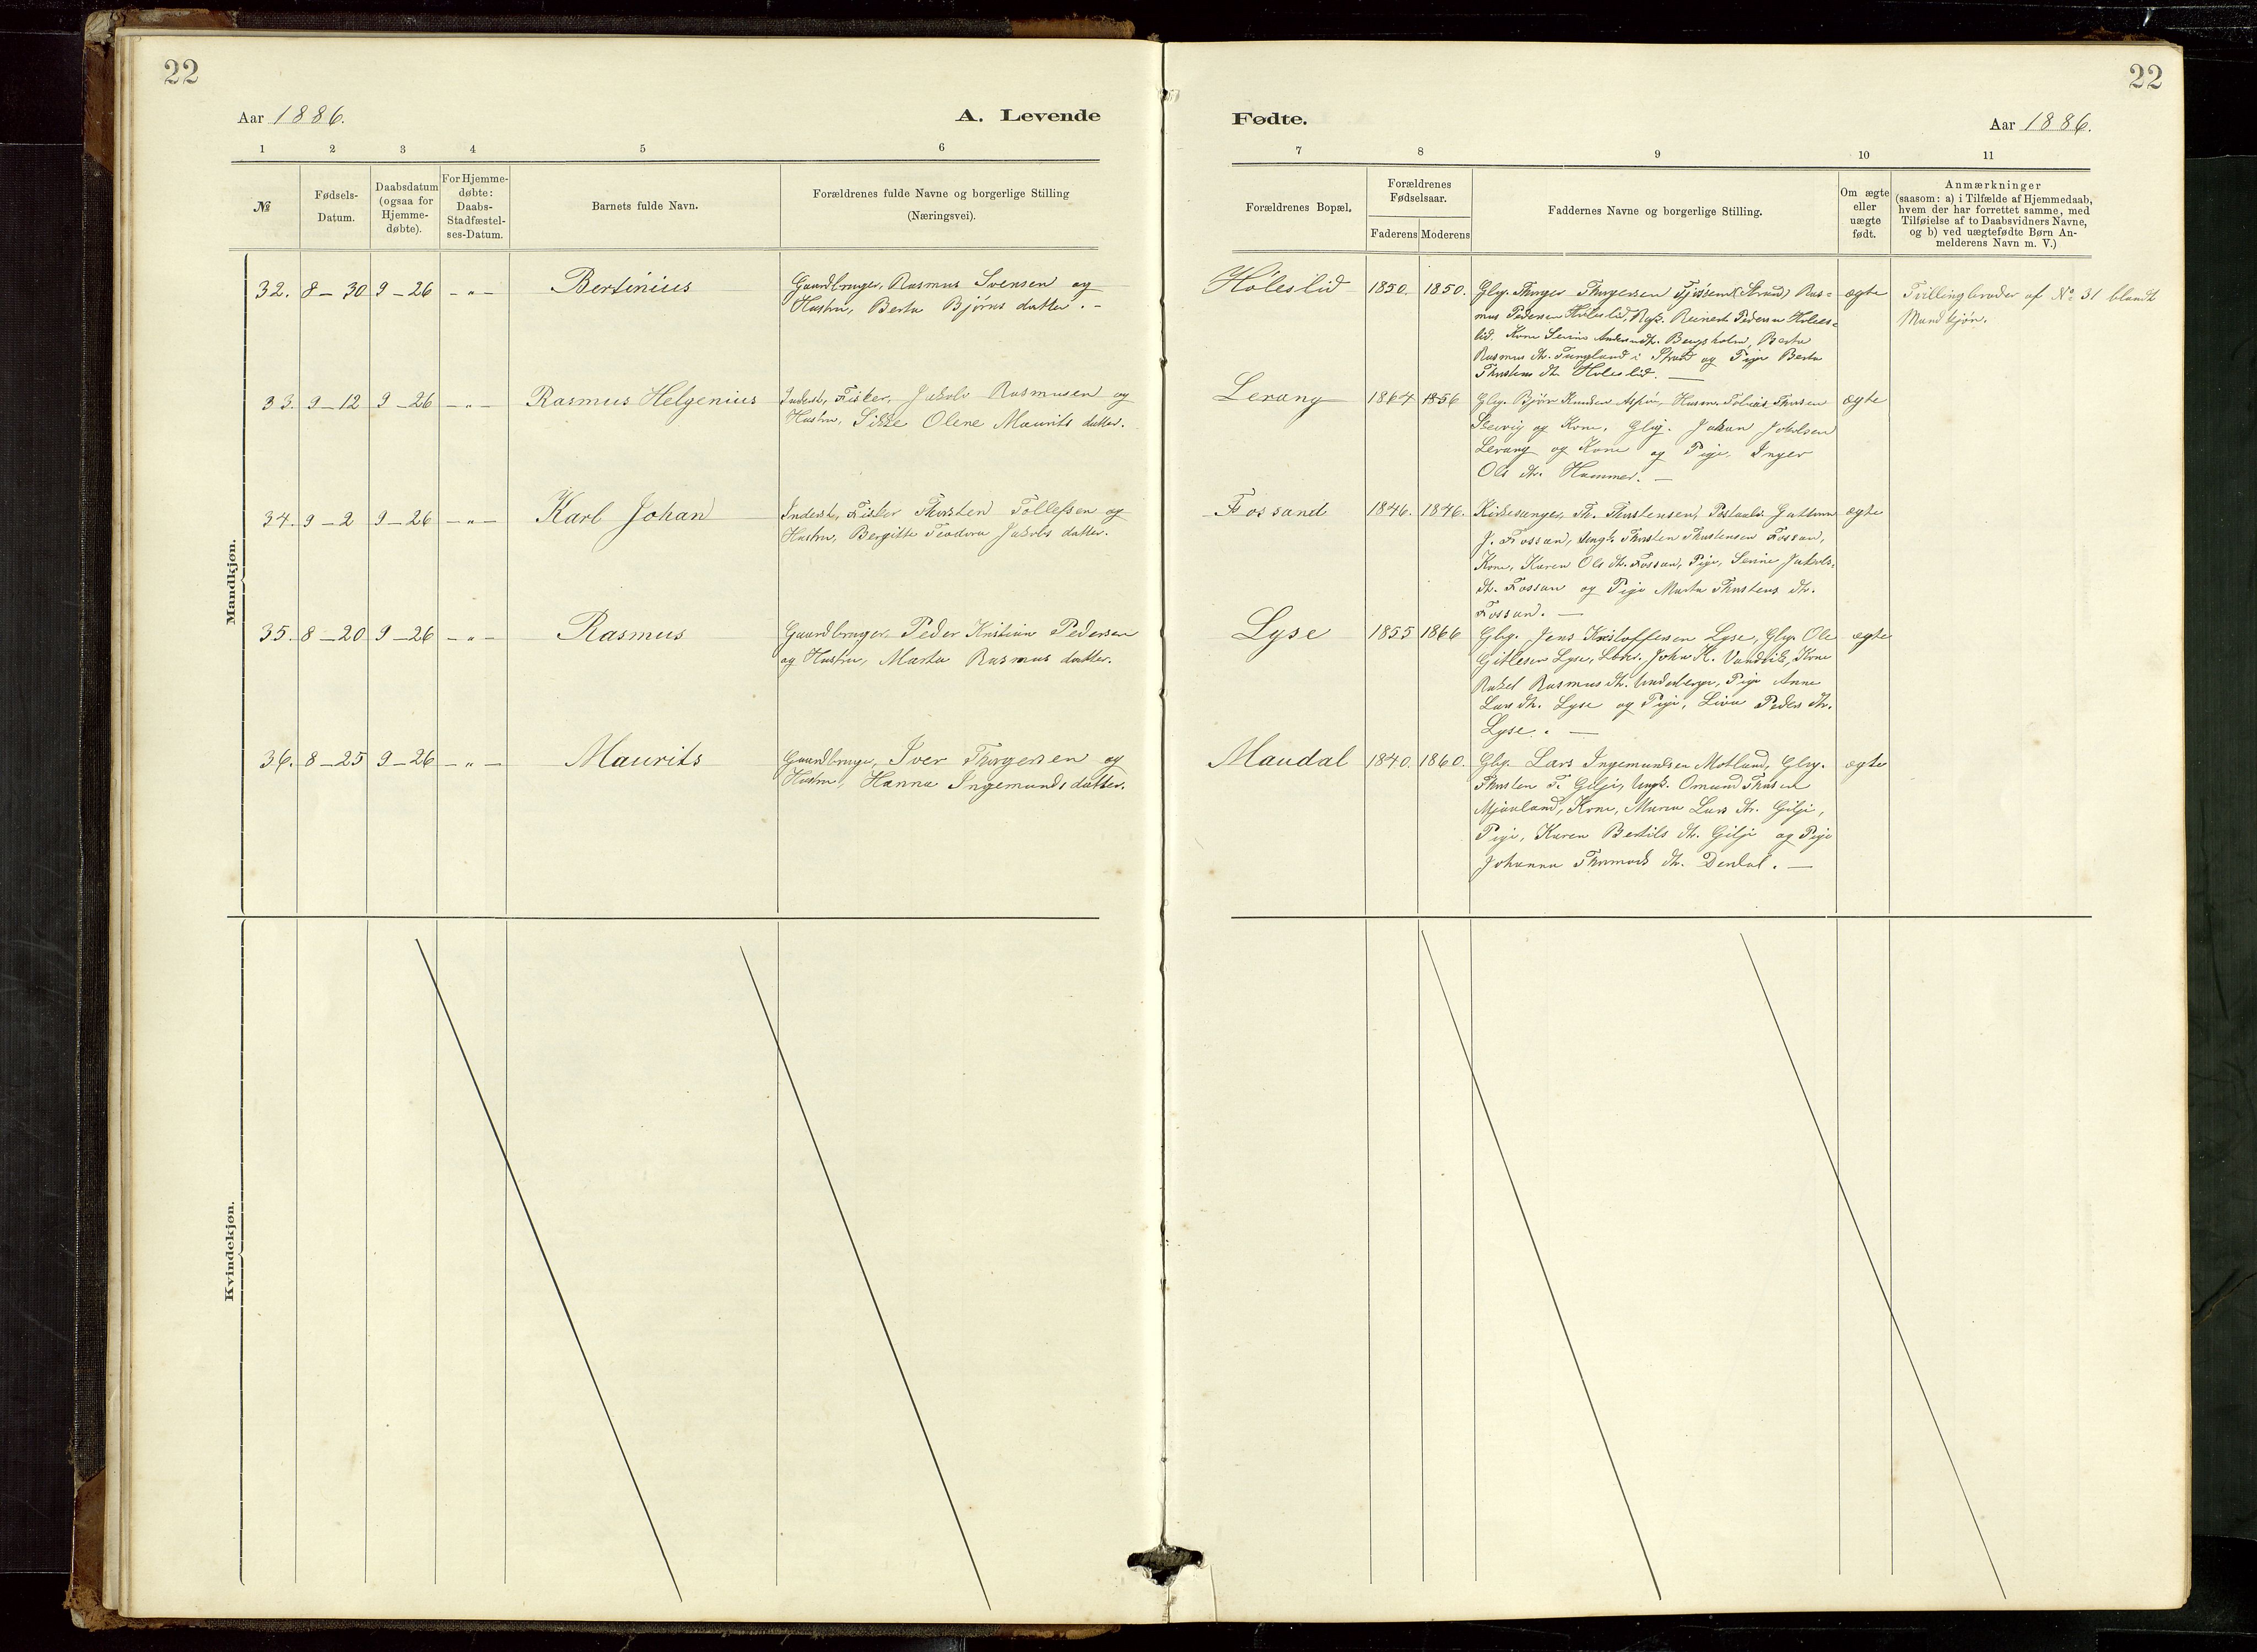 22
22
Aar 1886.
A. Levende
Fødte.
Aar 1886.
1 2 3 4 5 6
7 8 9 10 11
№
Fødsels-
Datum.
Daabsdatum
(ogsaa for
Hjemme-
døbte).
For Hjemme-
døbte:
Daabs-
Stadfæstel-
ses-Datum.
Barnets fulde Navn.
Forældrenes fulde Navne og borgerlige Stilling
(Næringsvei).
Forældrenes Bopæl.
Forældrenes
Fødselsaar.
Faderens Moderens
Faddernes Navne og borgerlige Stilling.
Om ægte
eller
uægte
født.
Anmærkninger
(saasom: a) i Tilfælde af Hjemmedaab,
hvem der har forrettet samme, med
Tilføielse af to Daabsvidners Navne,
og b) ved uægtefødte Børn An-
melderens Navn m. V.)
Mandkjøn.
32. 8-30 9-26 -„- Bertinius
Gaardbruger, Rasmus Svensen og
Hustru, Berta Bjørns datter. -
Høleslid 1850. 1850.
Gbg. Thorger Thorgersen Fjøsene (Strand) Ras=
mus Pedersen Høleslid, Reinert Pedersen Høles=
lid. Kone Serine Bergsholm, Berta
Rasmus dtr. Tungland i Strand og Pige Berta
Thorstens dtr Høleslid. -
ægte
Tvillingbroder af No 31 blandt
Mandkjøn.
33. 9-12 9-26 -„- Rasmus Helgenius
Inderst, Fisker, Jakob Rasmusen og
Hustru, Sikke Olene Maurits datter.
Lerang 1864 1856
Gbg. Bjørn Knudsen Aspøn, Husm. Tobias Thorsen
og Kone, Gbg. Johan Jakobsen
Lerang og Kone og Pige, Inger
Ols dtr. Hammer. -
ægte
34. 9-2 9-26 -„- Karl Johan
Inderst, Fisker Thorsten Tollefsen og
Hustru, Bergitte Teodora Jakobs datter.
Fossand 1846. 1846.
Kirkesanger, Th. Thorstensen, Guttorm
J. Fossan, Ungk. Thorsten Thorstensen Fossan,
Kone, Karen Ols dtr. Fossan, Pige, Serine Jakobs=
dtr. Fossan og Pige Marta Thorstens dtr.
Fossan. -
ægte
35. 8-20 9-26 -„- Rasmus
Gaardbruger Peder Kristian Pedersen
og Hustru, Marta Rasmus datter.
Lyse 1855 1866
Gbg. Jens Kristoffersen Lyse, Gbg. Ole
Gitlesen Lyse, John K. Vandvik, Kone
Rakel Rasmus dtr. Underberge, Pige Anne
Lars dtr. Lyse og Pige, Liva Peders dtr.
Lyse. -
ægte
36. 8-25 9-26 -„- Maurits
Gaardbruger, Iver Thorgersen og
Hustru, Hanna Ingemunds datter.
Maudal 1840. 1860.
Gbg. Lars Ingemundsen Motland, Gbg.
Thorsten T. Gilje, Ungk. Omund Thorsen
Mjaaland, Kone, Maren Lars dtr. Gilje,
Pige, Karen Bertils dtr. Gilje og Pige
Johanna Thormods dtr. Døvdal. -
ægte
Kvindekjøn.